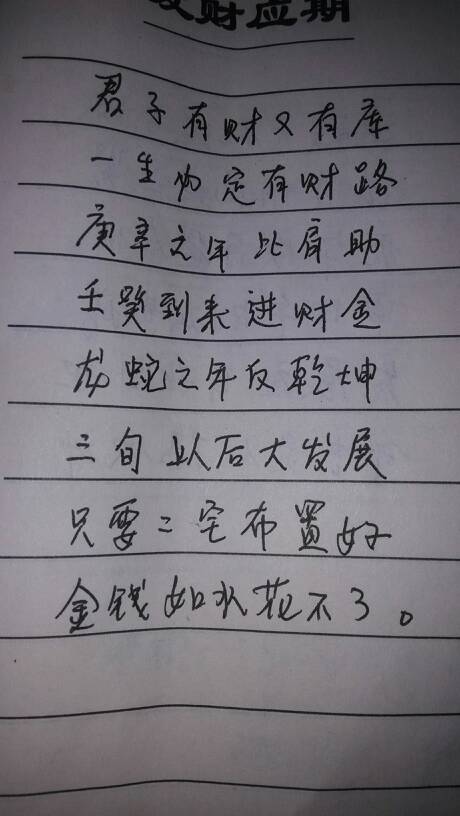 发财应期
君子有财又有库
一生内定有财路
庚辛之年比肩助
壬癸到来进财金
龙蛇之年反乾坤
三旬以后大发展
只要二宅布置好
金钱如水花不了。